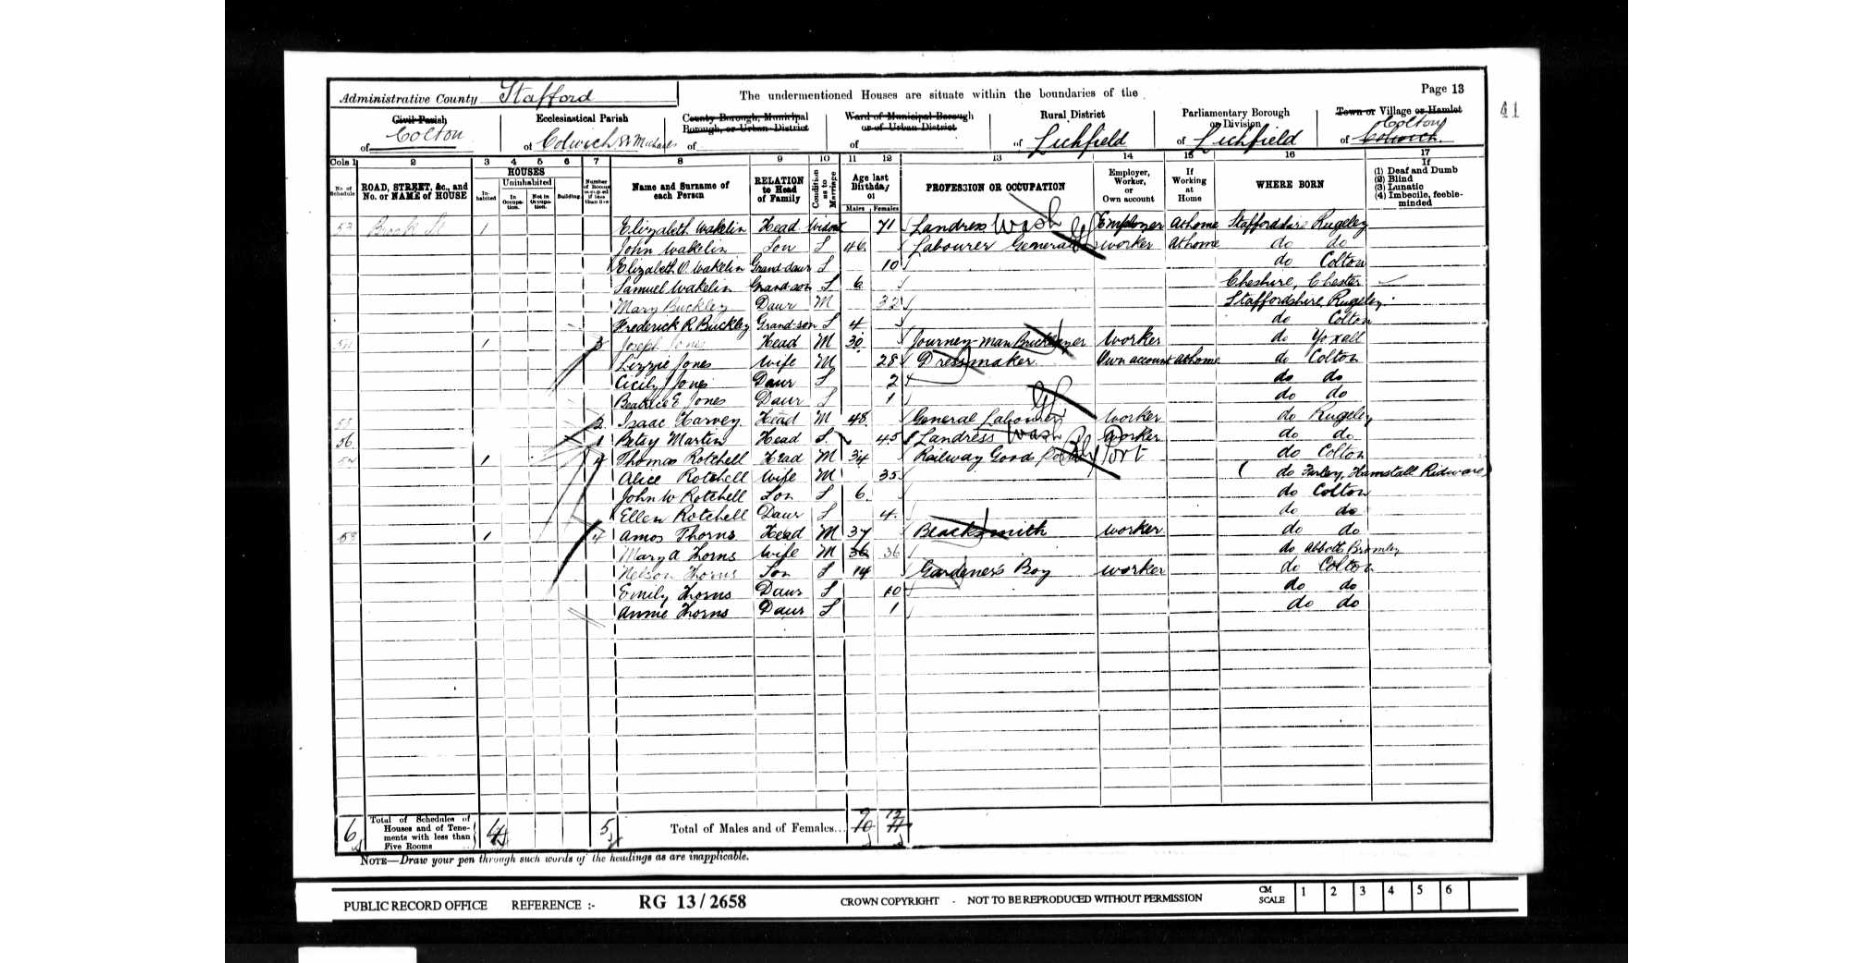 Administrative County Stafford The undermentioned Houses are situate within the boundaries of the Page 13
41
Civil Parish Ecclesiastical Parish County Borough, Municipal Borough, or Urban District Ward of Municipal Borough or of Urban District Rural District Parliamentary Borough or Division Town or Village or Hamlet
of Colton of Colwich St Michaels of of of Lichfield of Lichfield of Colton Colwich
Cols 1 2 3 4 5 6 7 8 9 10 11 12 13 14 15 16 17
No. of Schedule ROAD, STREET, &c., and No. or NAME of HOUSE HOUSES Inhabited Uninhabited In Occupation. Not in Occupation. Building Number of Rooms occupied if less than five Name and Surname of each Person RELATION to Head of Family Condition as to Marriage Age last Birthday of Males Females PROFESSION OR OCCUPATION Employer, Worker, or Own account If Working at Home WHERE BORN If (1) Deaf and Dumb (2) Blind (3) Lunatic (4) Imbecile, feeble-minded
53 Brook St 1 Elizabeth Wakelin Head Widow 71 Landress Wash Employer At home Staffordshire Rugeley
John Wakelin Son S 46 Labourer General worker At home do do
Elizabeth Wakelin Grand daur S 10 do Colton
Samuel Wakelin Grand son S 6 Cheshire, Chester
Mary Buckley Daur M 32 Staffordshire, Rugeley
Frederick R Buckley Grand-son S 4 do Colton
1 3 Joseph Jones Head M 30 Journey-man worker do Yoxall
Lizzie Jones Wife M 28 Dressmaker Own account At home do Colton
Cicily Jones Daur S 2 do do
Beatrice E Jones Daur S 1 do do
2 Isaac Harvey Head M 48 General Labourer worker do Rugeley
56 1 Betsy Martin Head S 45 Landress Wash worker do do
1 4 Thomas Rotchell Head M 34 Railway Good Port do Colton
Alice Rotchell Wife M 35 do Hamstall Ridware
John W Rotchell Son S 6 do Colton
Ellen Rotchell Daur S 4 do do
1 4 Amos Thorns Head M 37 Blacksmith worker do do
Mary A Thorns Wife M 36 36 do Abbots Bromley
Nelson Thorns Son S 14 Gardener's Boy worker do Colton
Emily Thorns Daur S 10 do do
Annie Thorns Daur S 1 do do
6 Total of Schedules of Houses and of Tenements with less than Five Rooms 4 5 Total of Males and of Females...
NOTE—Draw your pen through such words of the headings as are inapplicable.
PUBLIC RECORD OFFICE REFERENCE :- RG 13/2658 CROWN COPYRIGHT - NOT TO BE REPRODUCED WITHOUT PERMISSION CM SCALE 1 2 3 4 5 6